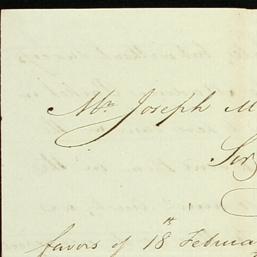 Mr. Joseph M
Sir
favors of 18th Februa